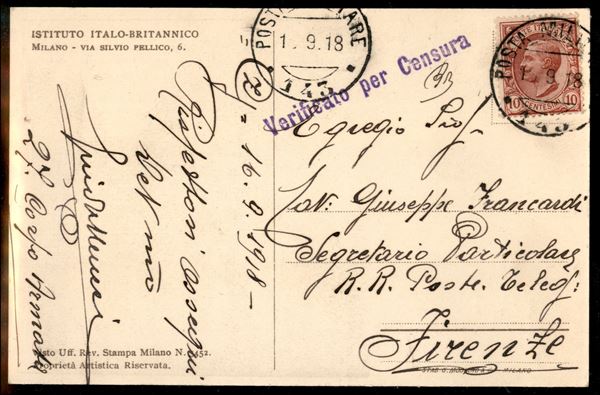 ISTITUTO ITALO-BRITANNICO
MILANO - VIA SILVIO PELLICO, 6.
POSTA MILITARE
1 . 9.18
143
Verificato per Censura
POSTA MILITARE
1 . 9.18
143
POSTE ITALIANE
10 CENTESIMI 10
16.9.1918 -
Rispettosi ossequi
27. Corpo Armata
Egregio Sig.
Cav. Giuseppe Francardi
Segretario Particolare
R. R. Poste. Telegf:
Firenze
Visto Uff. Rev. Stampa Milano N. 2452.
Proprietà Artistica Riservata.
MILANO